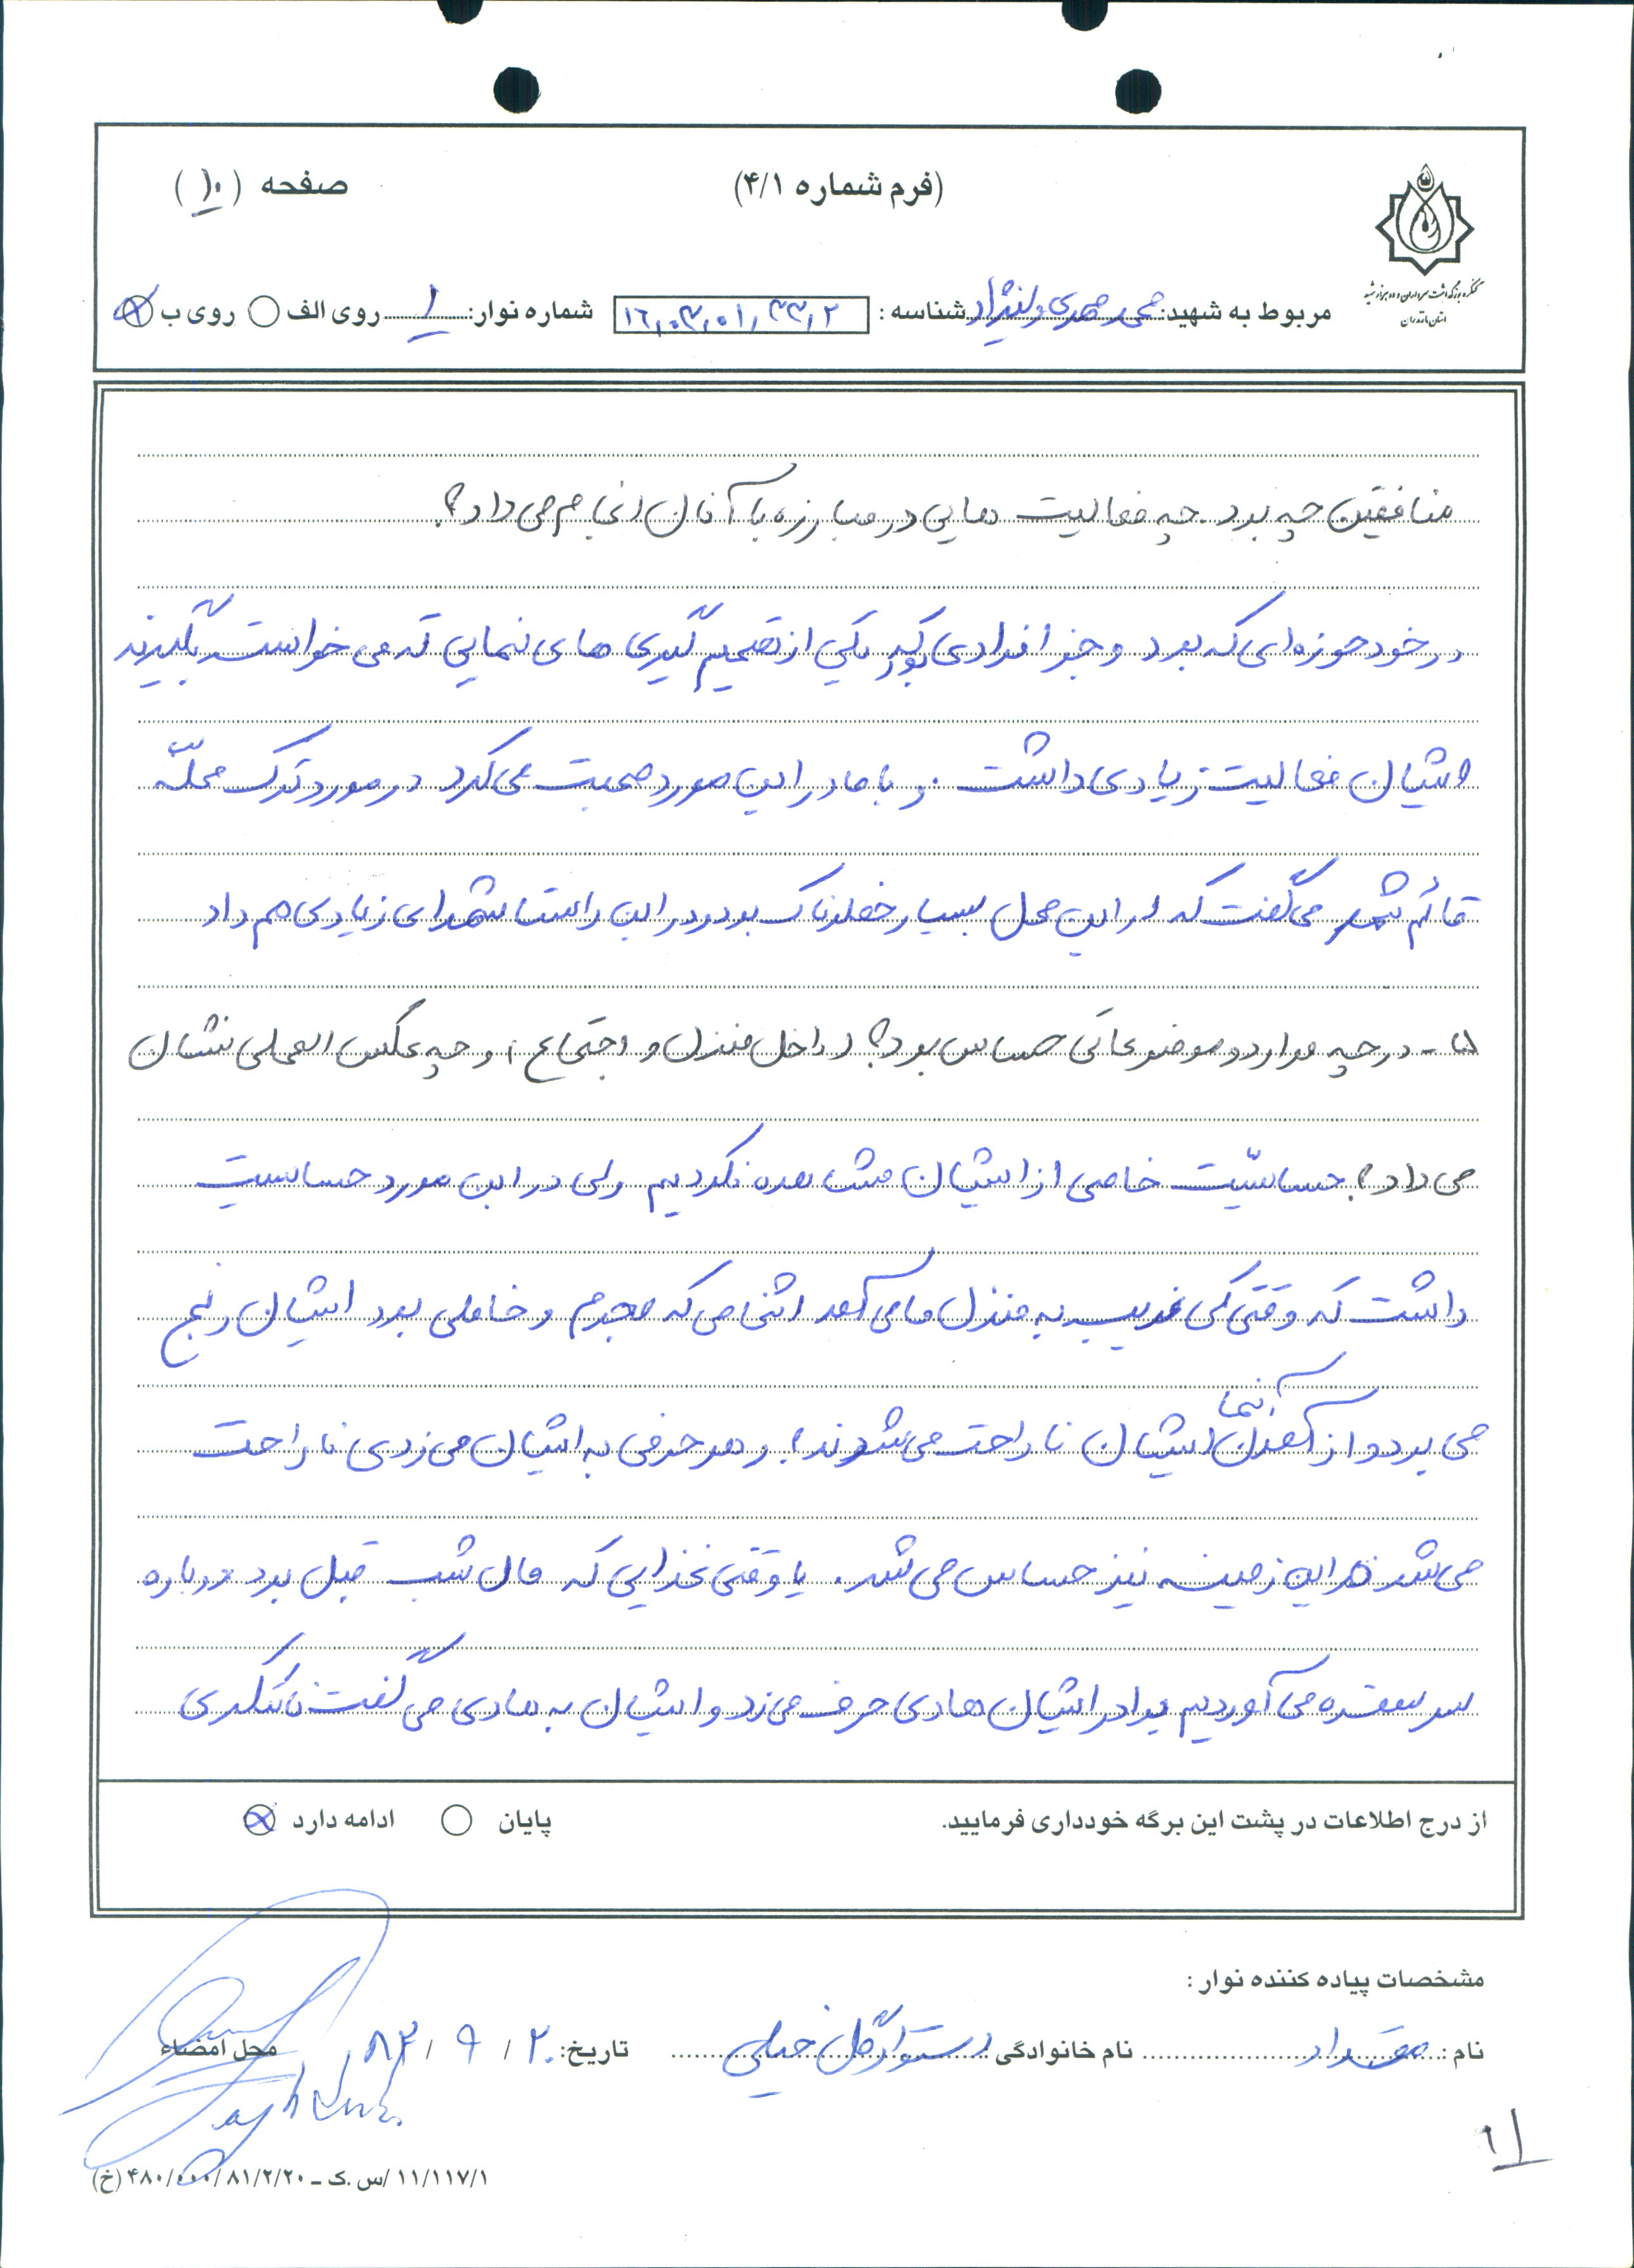 (فرم شماره ۴/۱)
صفحه (۱۰)
کنگره بزرگداشت سرداران و ده هزار شهید
استان مازندران
مربوط به شهید: محمد مهدی ولی‌نژاد شناسه: ۱۶٫۰۳٫۰۱٫۳۳٫۲ شماره نوار: ۱ روی الف روی ب
منافقین چه بود. چه فعالیت هایی در مبارزه با آنان انجام می داد؟
در خود حوزه ای که بود و جزء افرادی بود که یکی از تصمیم گیری های نهایی که می خواست بگیرند
ایشان فعالیت زیادی داشت و با ما در این مورد صحبت می کرد در مورد ترک محلّه
قائم شهر می گفت که در این محل بسیار خطرناک بود و در این راستا شهدای زیادی هم داد
۵- در چه موارد و موضوعاتی حساس بود؟ (داخل منزل و اجتماع) و چه عکس العملی نشان
می داد؟ حساسیّت خاصی از ایشان مشاهده نکردیم ولی در این مورد حساسیت
داشت که وقتی کسی غریب به منزل ما می آمد اشخاصی که مجرم و خاطی بود ایشان رنج
می برد و از آمدن آنها ایشان ناراحت می شدند و هر حرفی به ایشان می زدی ناراحت
می شد در این زمینه نیز حساس می شد. یا وقتی غذایی که مال شب قبل بود دوباره
سر سفره می آوردیم برادر ایشان هادی حرف می زد و ایشان به هادی می گفت ناشکری
از درج اطلاعات در پشت این برگه خودداری فرمایید.
پایان ادامه دارد
مشخصات پیاده کننده نوار:
نام: مقداد نام خانوادگی: رستگار حیلی تاریخ: ۲۰ / ۹ / ۸۳ محل امضاء
۱۱
۱۱/۱۱۷/۱ /س.ک - ۸۱/۲/۲۰ /۴۸۰/۰۰۰ (خ)